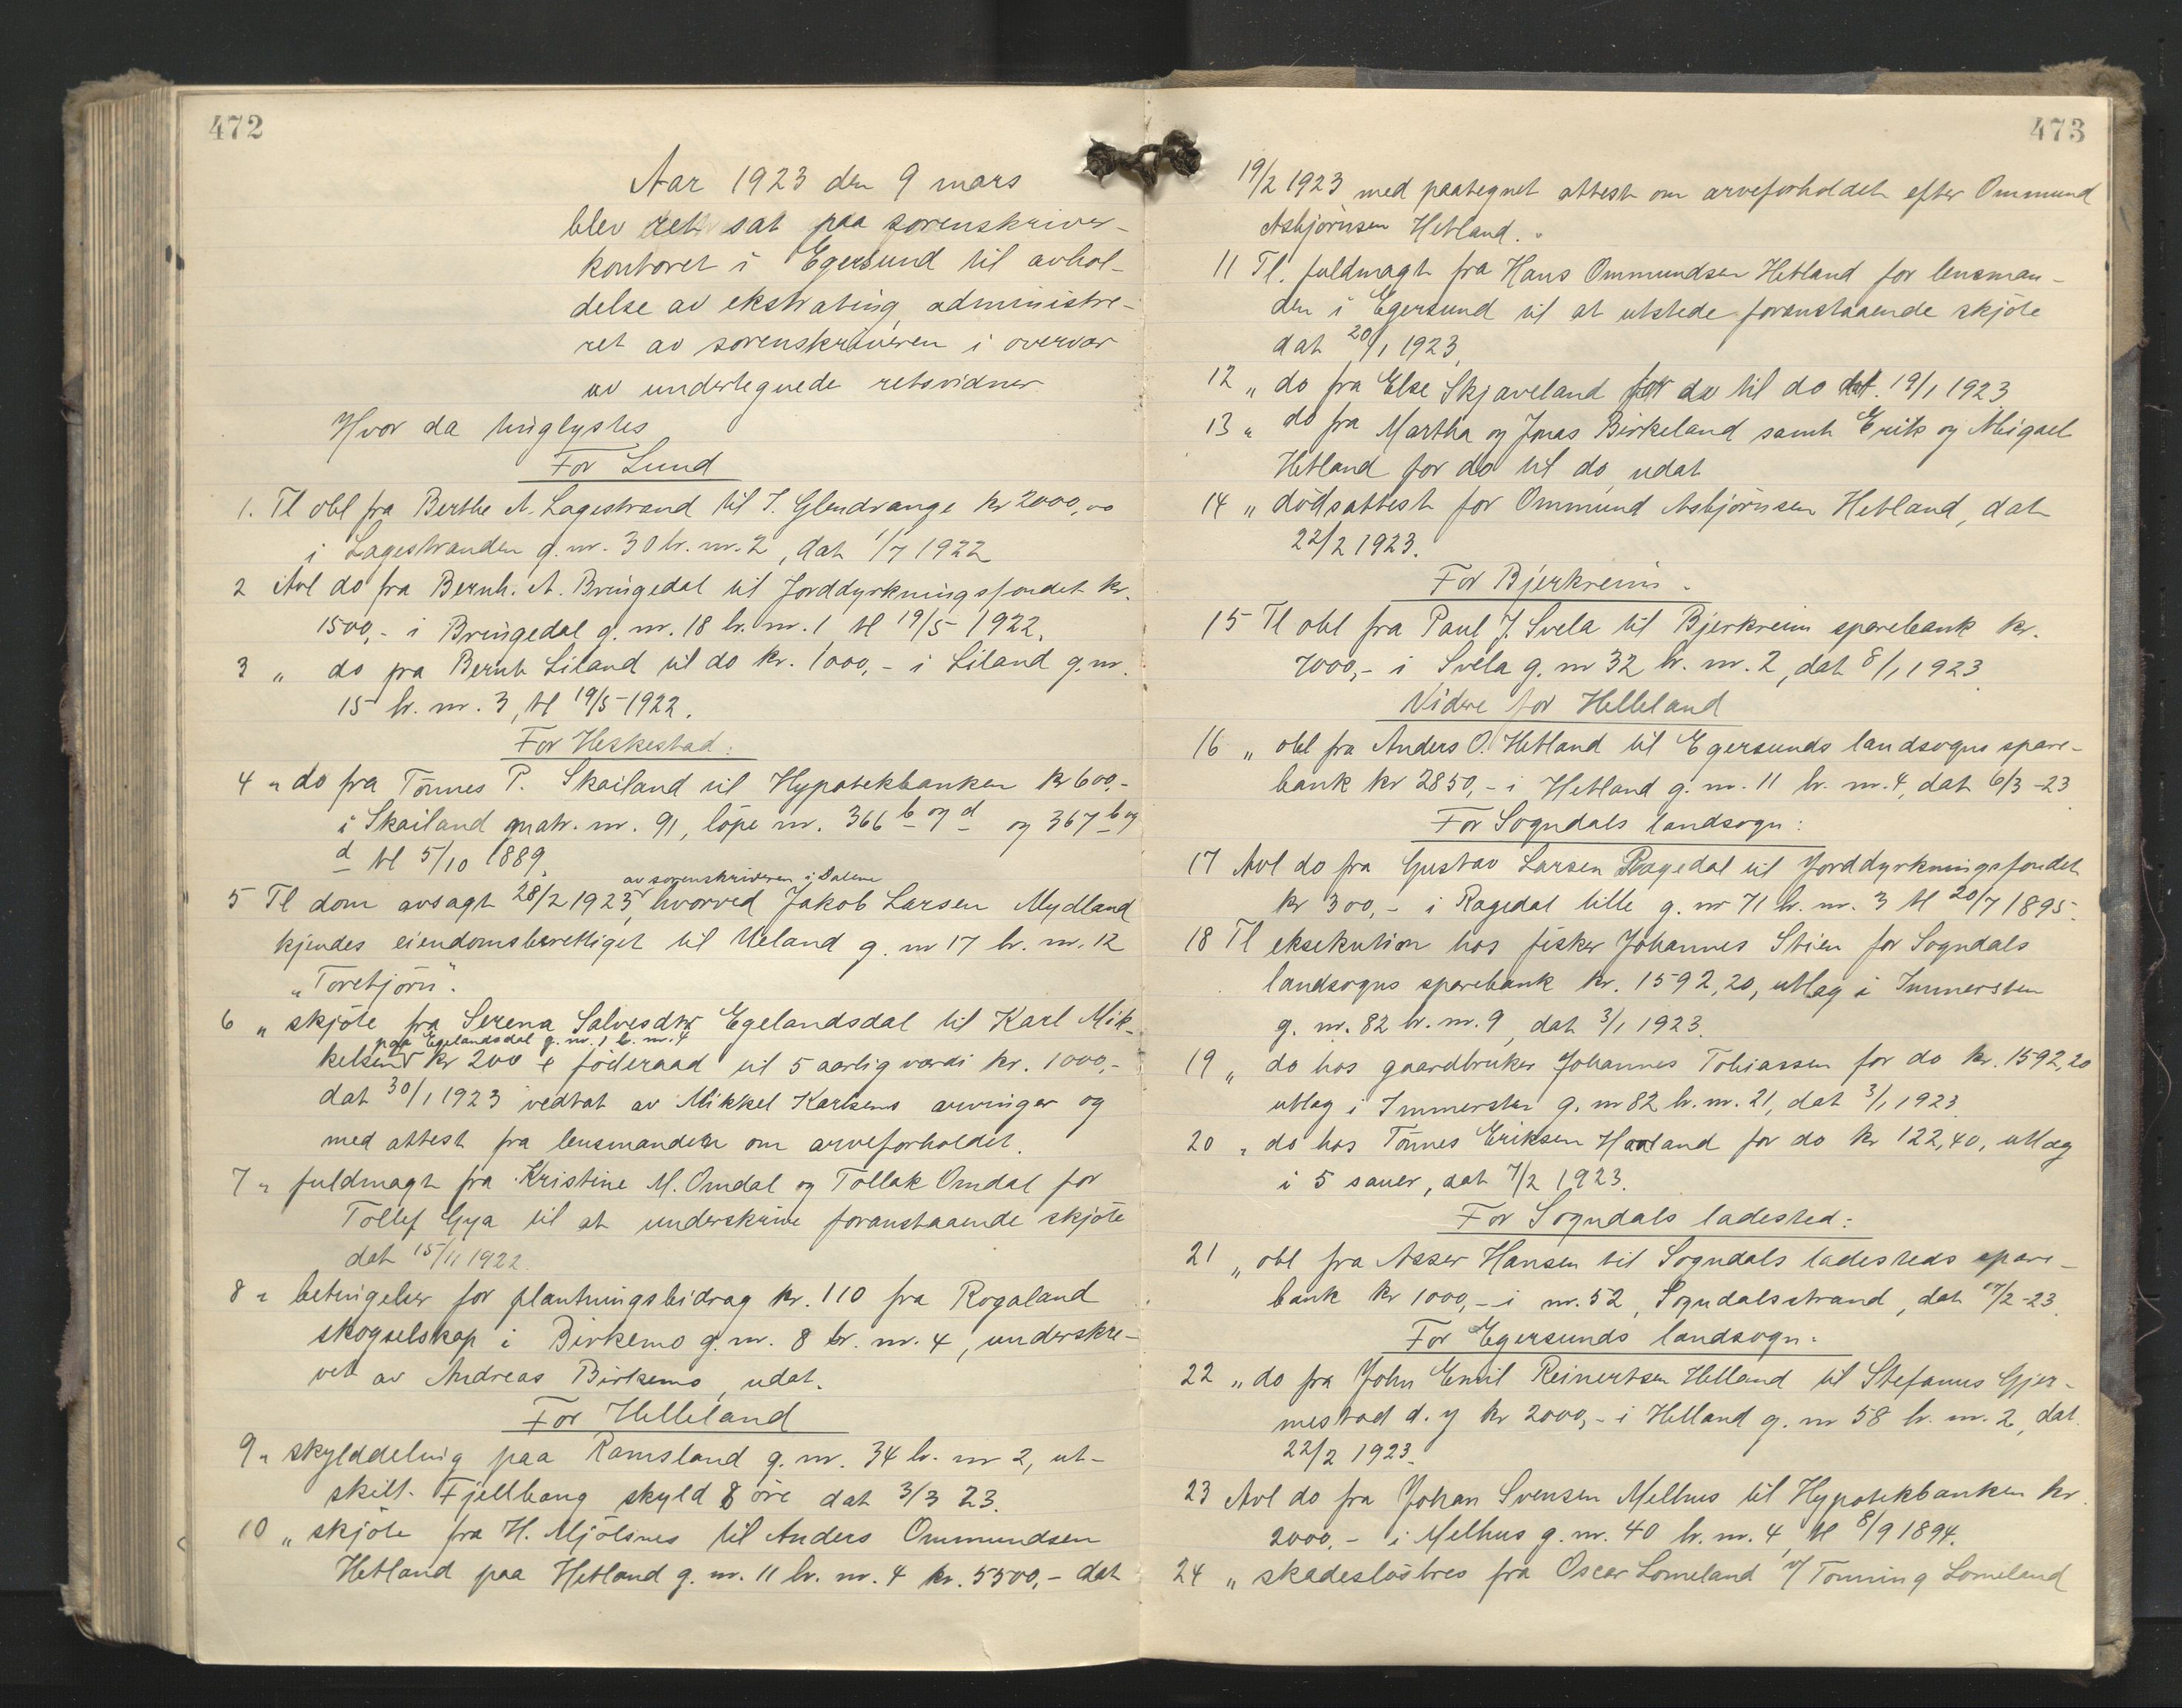 472
Aar 1923 den 9 mars
blev ret sat paa sorenskriver-
kontoret i Egersund til avhol-
delse av ekstrating, administre-
ret av sorenskriveren i overvær
av undertegnede retsvidner
Hvor da tinglystes
For Lund
1. Tl obl fra Berthe A. Lagestrand til I. Glendrange kr 2000,00
i Lagestranden g. nr. 30 br. nr. 2, dat 1/7 1922
2 Avl do fra Bernh. A. Bringedal til Jorddyrkningsfondet kr.
1500,- i Bringedal g. nr. 18 br. nr. 1 tl 19/5 1922.
3 " do fra Bernh Liland til do kr. 1000,- i Liland g. nr.
15 br. nr. 3, tl 19/5-1922.
For Heskestad:
4 " do fra Tönnes P. Skailand til Hypotekbanken kr 600,-
i Skailand matr. nr. 91, löpe nr. 366 b og d og 367 b og
d tl 5/10 1889.
5 Tl dom avsagt 28/2 1923, av sorenskriveren i Dalene hvorved Jakob Larsen Mydland
kjendes eiendomsberettiget til Ueland g. nr 17 br. nr. 12
"Toretjörn".
6 " skjöte fra Serena Salvesdtr Egelandsdal til Karl Mik-
kelsen paa Egelandsdal g. nr. 1 br. nr. 4 kr 200 + föderaad til 5 aarlig værdi kr. 1000,-
dat 30/1 1923 vedtat av Mikkel Karlsens arvinger og
med attest fra lensmanden om arveforholdet.
7 " fuldmagt fra Kristine M. Omdal og Tollak Omdal for
Tollef Gya til at underskrive foranstaaende skjöte
dat 15/11 1922.
8 " betingelser for plantningsbidrag kr. 110 fra Rogaland
skogselskap i Birkemo g. nr. 8 br. nr. 4, underskre-
vet av Andreas Birkemo, udat.
For Helleland
9 " skylddeling paa Ramsland g. nr. 34 br. nr 2, ut-
skilt Fjellhaug skyld 8 öre dat 3/3 23.
10 " skjöte fra H. Mjölsnes til Anders Ommundsen
Hetland paa Hetland g. nr. 11 br. nr. 4 kr. 5500,- dat
473
19/2 1923 med paategnet attest om arveforholdet efter Ommund
Asbjörnsen Hetland.
11 Tl. fuldmagt fra Hans Ommundsen Hetland for lensman-
den i Egersund til at utstede foranstaaende skjöte
dat 20/1 1923.
12 " do fra Else Skjæveland for do til do dat. 19/1 1923
13 " do fra Martha og Jonas Birkeland samt Erik og Migael
Hetland for do til do, udat
14 " dödsattest for Ommund Asbjörnsen Hetland, dat
22/2 1923.
For Bjerkreim.
15 Tl obl fra Paul J. Svela til Bjerkreim sparebank kr.
7000,- i Svela g. nr 32 br. nr. 2, dat 8/1 1923.
Videre for Helleland
16 " obl fra Anders O. Hetland til Egersunds landsogns spare-
bank kr 2850,- i Hetland g. nr. 11 br. nr. 4, dat 6/3-23
For Sogndals landsogn:
17 Avl do fra Gustav Larsen Ragedal til Jorddyrkningsfondet
kr 300,- i Ragedal lille g. nr 71 br. nr. 3 tl 20/7 1895.
18 Tl eksekution hos fisker Johannes Stien for Sogndals
landsogns sparebank kr. 1592,20, utlæg i Immersten
g. nr. 82 br. nr. 9, dat 3/1 1923.
19 " do hos gaardbruker Johannes Tobiassen for do kr. 1592,20
utlæg i Immersten g. nr 82 br. nr. 21, dat 3/1 1923.
20 " do hos Tönnes Eriksen Haaland for do kr 122,40, utlæg
i 5 sauer, dat 7/2 1923.
For Sogndals ladested:
21 " obl fra Asser Hansen til Sogndals ladesteds spare-
bank kr 1000,- i nr. 52, Sogndalsstrand, dat /2-23.
For Egersunds landsogn:
22 " do fra John Emil Reinertsen Helland til Stefanus Gjer-
mestad d. y kr 2000,- i Helland g. nr 58 br. nr. 2, dat.
22/2 1923.
23 Avl do fra Johan Svensen Melhus til Hypotekbanken kr.
2000,- i Melhus g. nr. 40 br. nr. 4, tl 8/9 1894.
24 " skadeslösbrev fra Oscar Lomeland Tonning Lomeland